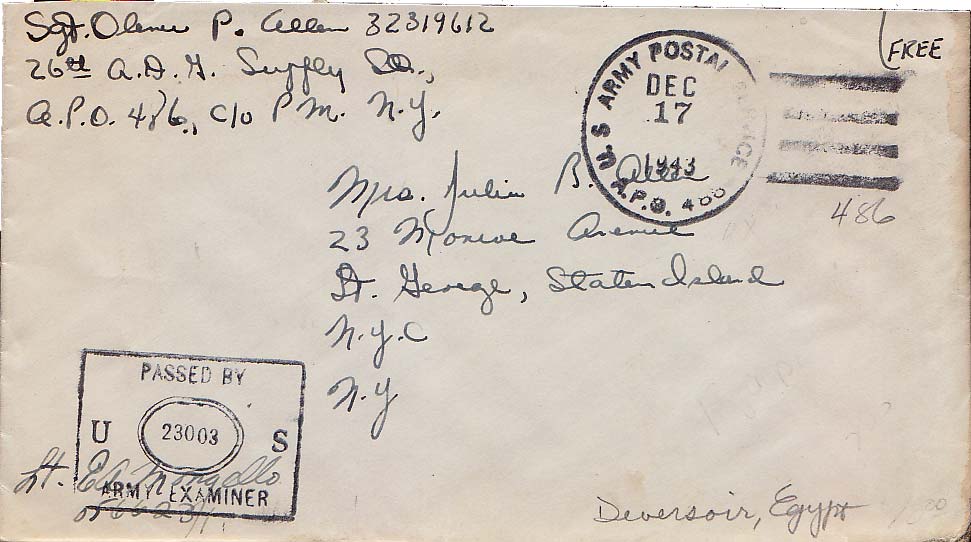 Sgt. Olener P. Allen 32319612
26th A.D.G. Supply Sq.,
A.P.O. 486, c/o P.M. N.Y.
FREE
U.S. ARMY POSTAL SERVICE
DEC
17
1943
A.P.O. 486
486
Mrs. Julia B. Allen
23 Monroe Avenue
St. George, Staten Island
N.Y.C
N.Y
PASSED BY
U 23003 S
ARMY EXAMINER
Lt.
Deversoir, Egypt